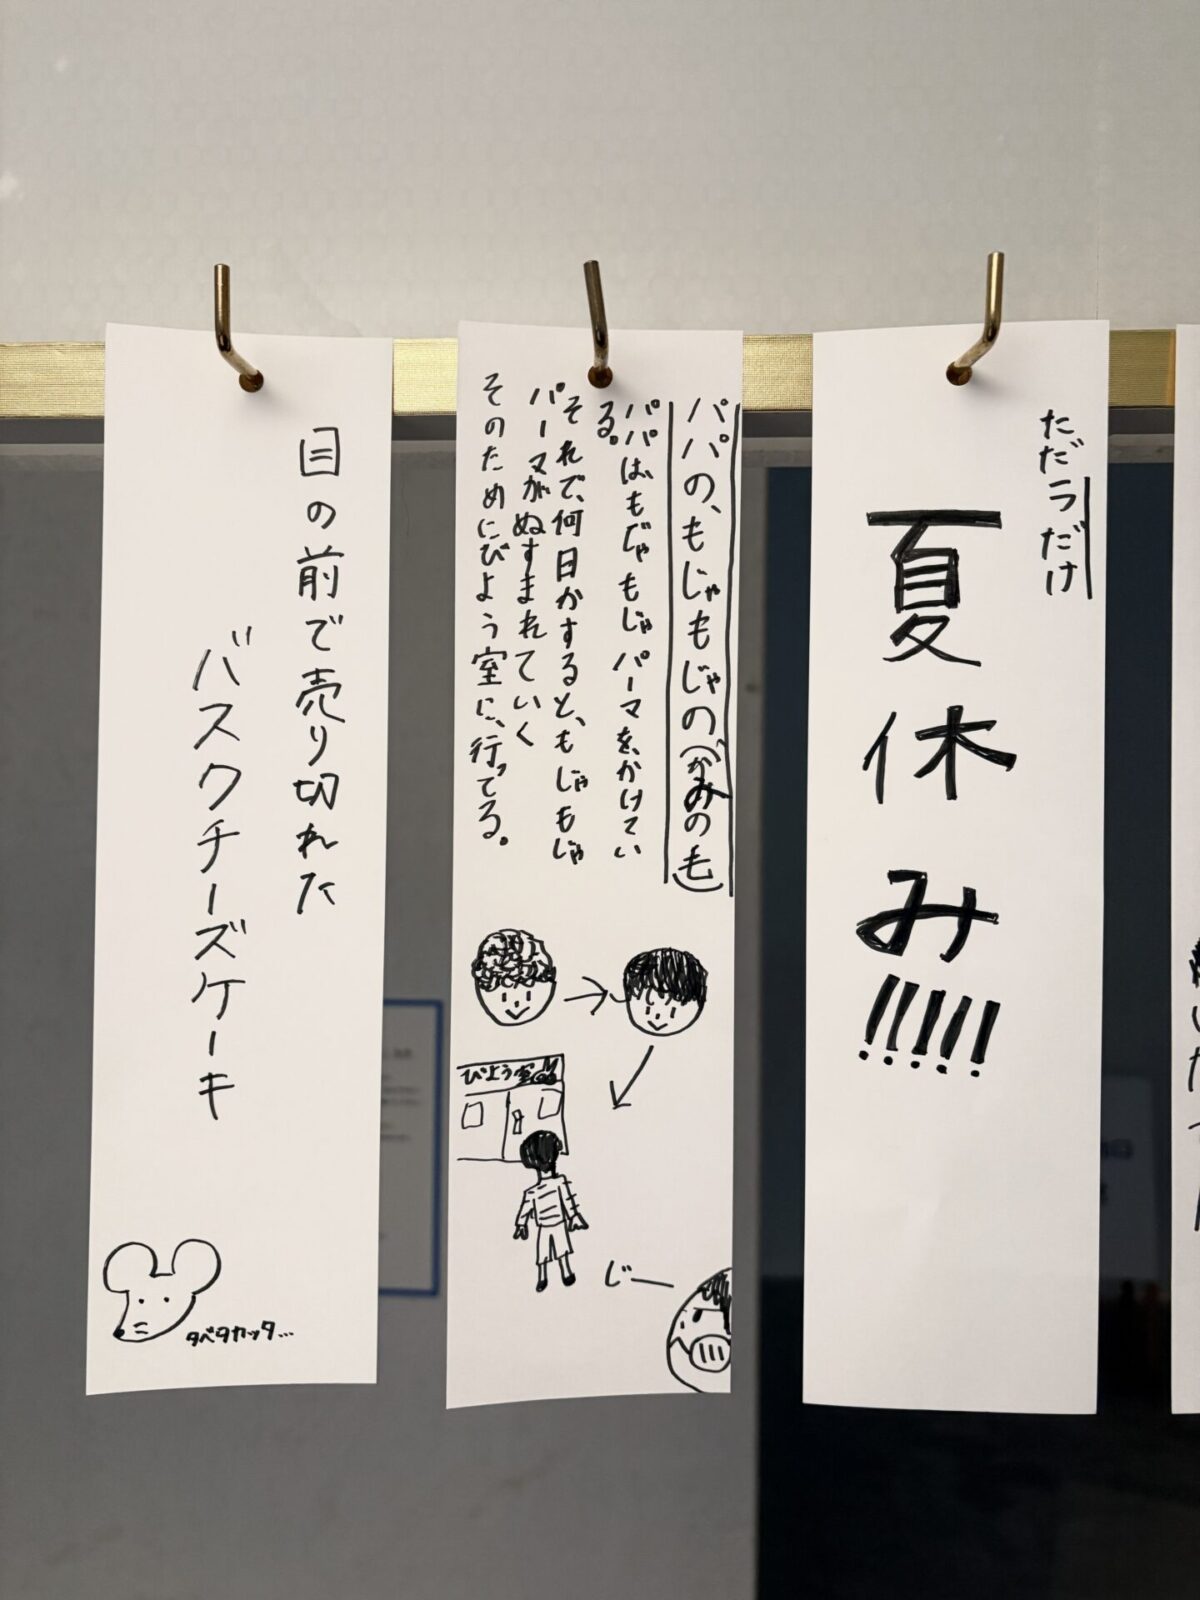 目の前で売り切れた
バスクチーズケーキ
タベタカッタ…
パパの、もじゃもじゃの(かみの毛)
パパは、もじゃもじゃパーマを、かけてい
る。
それで、何日かすると、もじゃもじゃ
パーマがぬすまれていく
そのためにびよう室に、行ってる。
びよう室
じー
ただラだけ
夏休み!!!!!